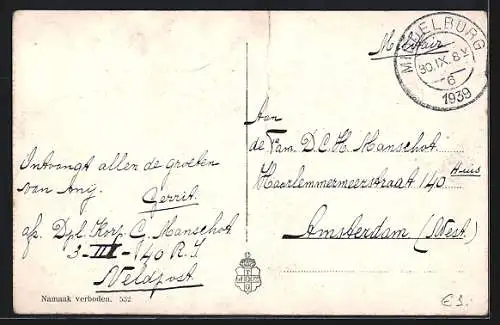 Militair
MIDDELBURG
30.IX.8V
6
1939
Aan
de Fam. D.C.H. Manschot
Haarlemmermeerstraat 140 Huis
Amsterdam (West.)
Ontvangt allen de groeten
van mij.
Gerrit.
afz. Dpl. Korp C. Manschot
3-III-140 R.I
Veldpost
Namaak verboden. 532
€3.